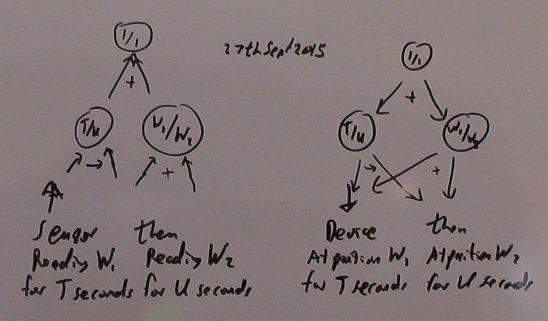 1/1
27th Sept 2015
1/1
+
+
T/U
W1/W2
T/U
W1/W2
→
+
→
+
Sensor then
Reading W1 Reading W2
for T seconds for U seconds
Device then
At position W1 At position W2
for T seconds for U seconds